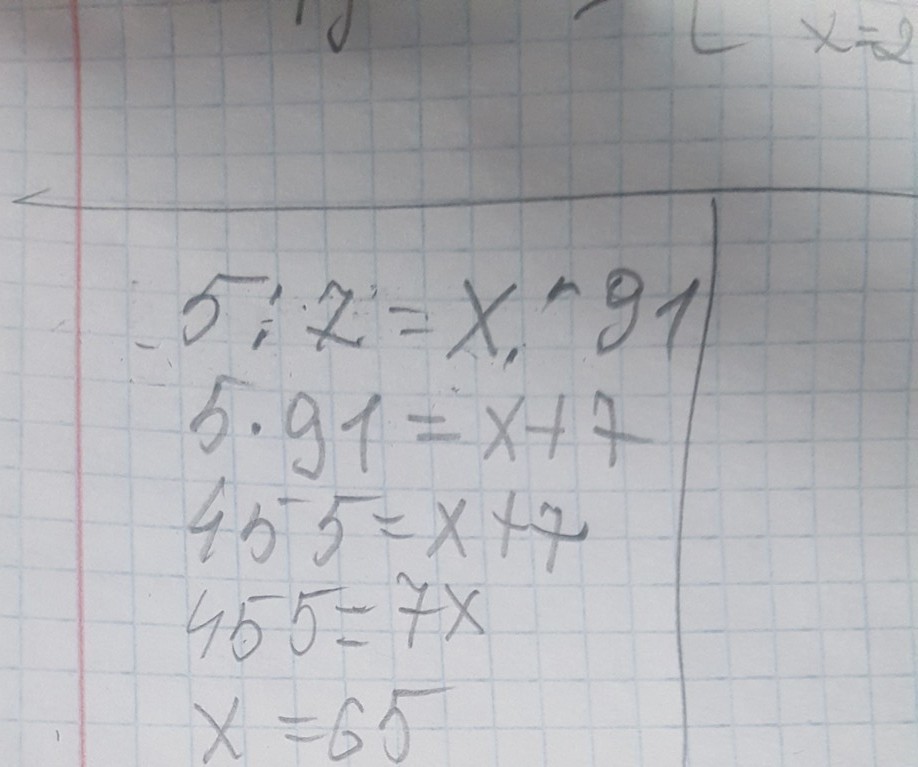 x=2
5:7=x:91
5·91=x+7
455=x+7
455=7x
x=65